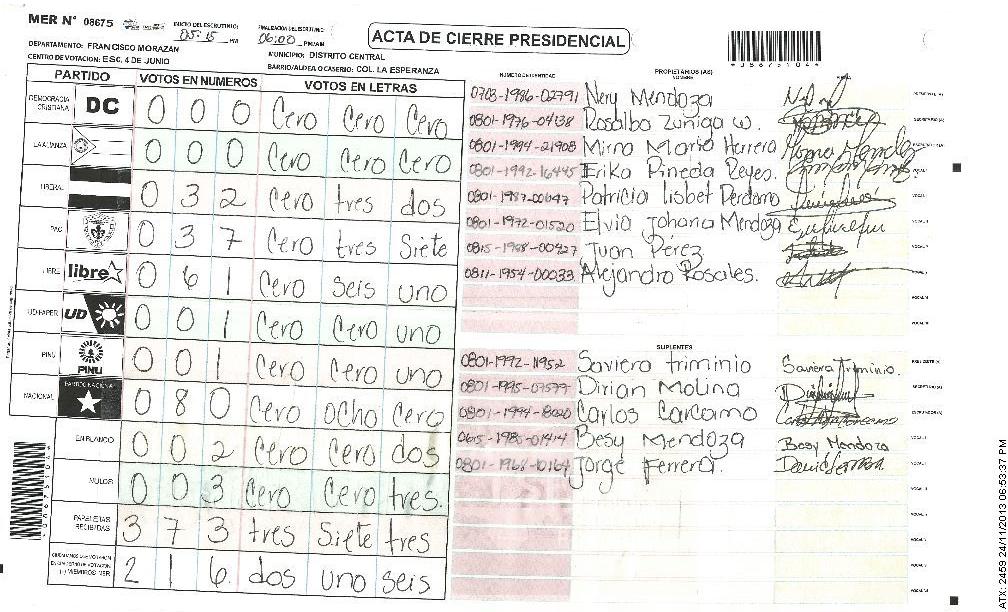 MER N° 08675
INICIO DEL ESCRUTINIO: 05:15 PM
FINALIZACION DEL ESCRUTINIO: 06:00 PM/AM
ACTA DE CIERRE PRESIDENCIAL
DEPARTAMENTO: FRANCISCO MORAZAN
MUNICIPIO: DISTRITO CENTRAL
CENTRO DE VOTACION: ESC. 4 DE JUNIO
BARRIO/ALDEA O CASERIO: COL. LA ESPERANZA
PARTIDO VOTOS EN NUMEROS VOTOS EN LETRAS
DEMOCRACIA CRISTIANA DC 0 0 0 Cero Cero Cero
LA ALIANZA 0 0 0 Cero Cero Cero
LIBERAL 0 3 2 Cero tres dos
PAC 0 3 7 Cero tres Siete
LIBRE libre 0 6 1 Cero seis uno
UD FAPER UD 0 0 1 Cero Cero uno
PINU PINU 0 0 1 Cero Cero uno
NACIONAL PARTIDO NACIONAL 0 8 0 Cero ocho Cero
EN BLANCO 0 0 2 Cero Cero dos
NULOS 0 0 3 Cero Cero tres.
PAPELETAS RECIBIDAS 3 7 3 tres Siete tres
CIUDADANOS QUE VOTARON EN CUADERNO DE VOTACION (+) MIEMBROS MER 2 1 6. dos uno seis
NUMERO DE IDENTIDAD PROPIETARIOS (AS)
NOMBRE FIRMA
0703-1986-02791 Nery Mendoza
0801-1976-04138 Rosalba Zuniga w.
0801-1994-21908 Mirna Maria Herrera
0801-1992-16445 Erika Pineda Reyes.
0801-1987-00647 Patricia Lisbet Perdomo
0801-1972-01520 Elvia Johana Mendoza
0815-1958-00427 Juan Perez
0811-1954-00033 Alejandro Rosales.
SUPLENTES
0801-1992-11952 Saviera triminio Saviera Triminio.
0801-1995-07577 Dirian Molina
0801-1994-8020 Carlos Carcamo
0615-1985-01414 Besy Mendoza Besy Mendoza
0801-1968-10164 Jorge Ferrera.
ATX: 2459 24/11/2013 06:53:37 PM